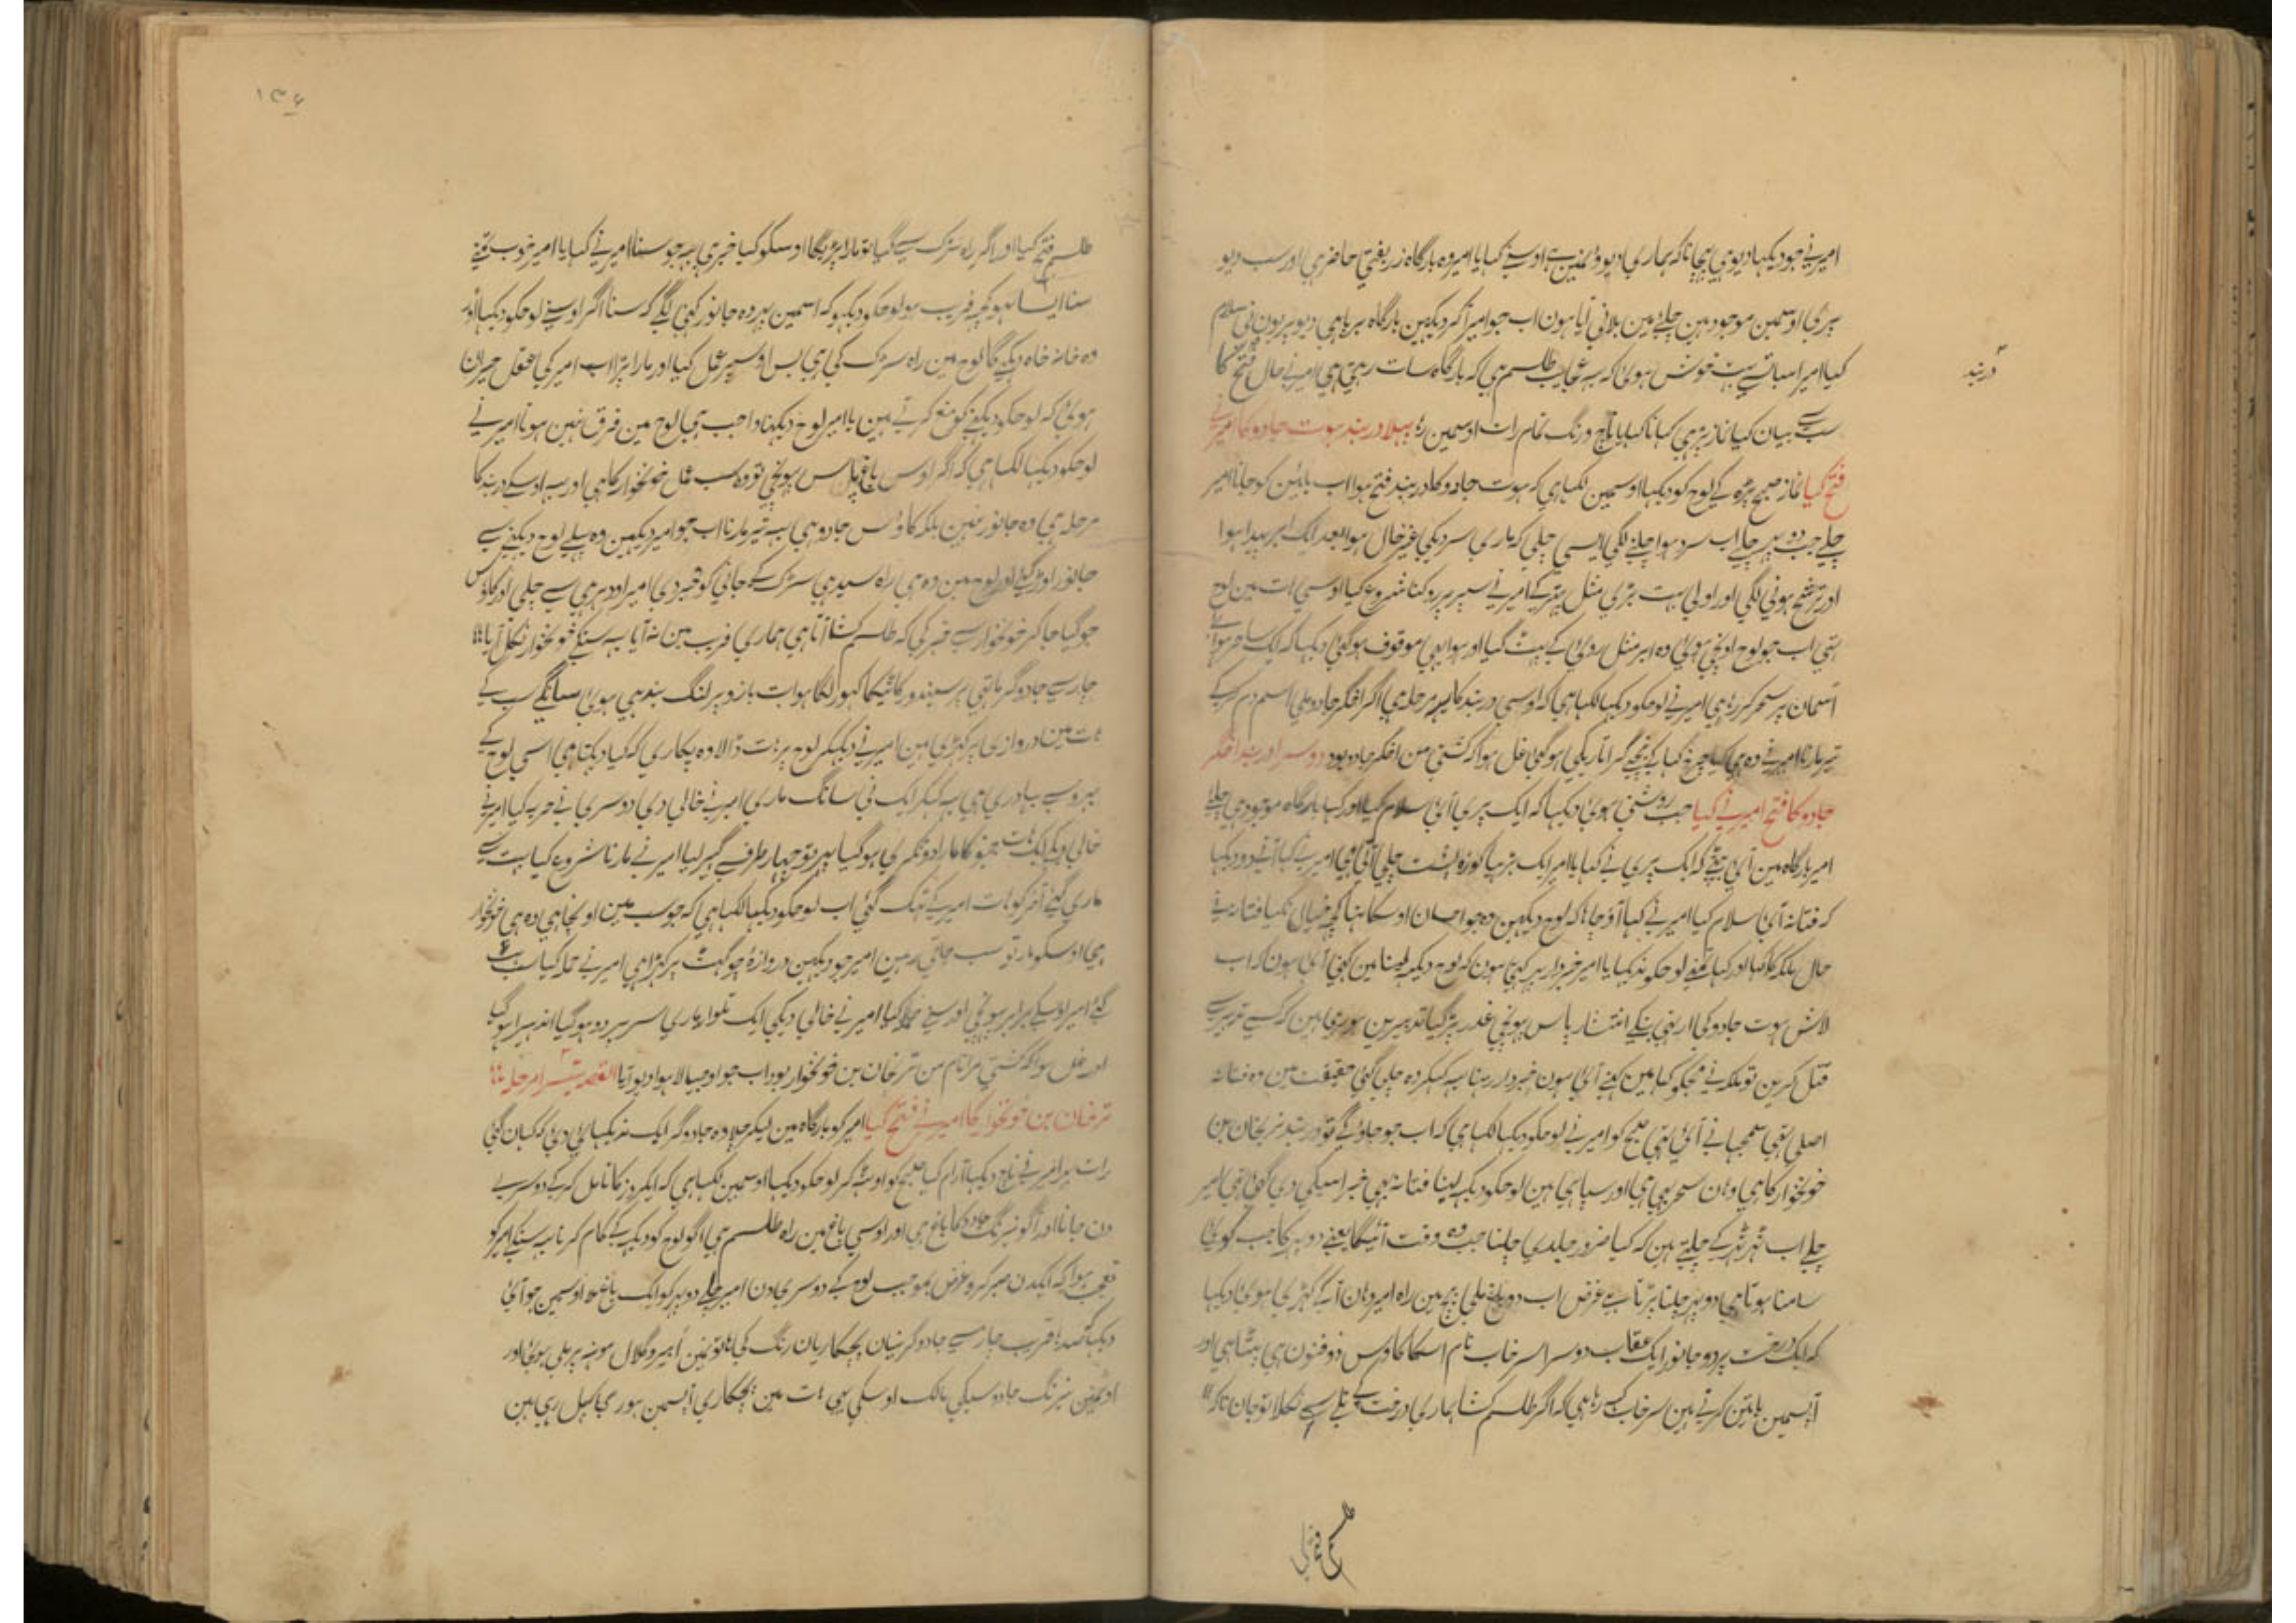 امیر نے جو دیکہا دیو ہی پہچانا کہ ہماری دیوونمین ہے اوسنے کہا یا امیر وہ بارگاہ زربفتی حاضر ہی اور سب دیو
پری اوسمین موجود ہین چلئے مین بلانی آیا ہون اب جو امیر آکر دیکہین بارگاہ برپا ہی دیو پریون نی سلام
کیا امیر اسبات سے بہت خوش ہوئی کہ یہ عجایب طلسم ہی کہ بارگاہ سات رہتی ہی امیر نے حال فتح کا
سب سے بیان کیا نماز پڑہی کہانا کہایا ناچ و رنگ تمام رات اوسمین رہا پہلا دربند ہوت جادو کا امیر نے
دربند
فتح کیا نماز صبح پڑہ کے لوح کو دیکہا اوسمین لکہا ہی کہ ہوت جادو کا دربند فتح ہوا اب بائین کو جانا امیر
چلے جب دوپہر چلے اب سرد ہوا چلنے لگی ایسی چلی کہ ماری سردیکی غیر حال ہوا بعد ایک ابر پیدا ہوا
اور ترشح ہونی لگی اور اولی بہت بڑی مثل پتہر کے امیر نے سپر پر روکنا شروع کیا اوسی ہات مین لوح
تہی اب جو لوح اونچی ہوئی وہ ابر مثل روئی کے پہٹ گیا اور ہوا بہی موقوف ہوگئی دیکہا کہ ایک ساحر ہوا سے
آسمان پر سحر کر رہا ہی امیر نے لوحکو دیکہا لکہا ہی کہ اوسی دربند کا یہ مرحلہ ہی اگر افگر جادو ملی اسم دم کرکے
تیر مارنا امیر نے وہ ہی کیا چرخ کہا کے نیچے گرا تاریکی ہو گئی غل ہوا کہ کشتی من افگر جادو بود دوسرا دربند افگر
جادو کا فتح امیر نے کیا جب روشنی ہوئی دیکہا کہ ایک پری آئی سلام کیا اور کہا بارگاہ موجود ہی چلئے
امیر بارگاہ مین آئی بیٹہے کہ ایک پری نے کہا یا امیر ایک بڑہیا کوزہ پشت چلی آتی ہی امیر نے کہا آنے دو دیکہا
کہ فتانہ آئی سلام کیا امیر نے کہا آؤ چاہا کہ لوح دیکہین وہ جو احسان اوسکا تہا کچہ خیال نکیا فتانہ نے
حال ملکہ کا کہا اور کہا تمنے لوحکو ندیکہا یا امیر خبردار پہر کہتی ہون کہ لوح دیکہہ لینا مین کہنی آئی ہون کہ اب
لاش ہوت جادو کی ارنہی بنکے انتشار پاس پہونچی غدر پڑ گیا تدبیرین ہو رہی ہین کہ کسے تدبیر سے
قتل کرین تو ملکہ نے مجکو کہا مین کہنے آئی ہون خبردار رہنا یہ کہکر وہ چلی گئی حقیقت مین وہ فتانہ
اصلی تہی سمجہانے آئی تہی صبح کو امیر نے لوحکو دیکہا لکہا ہی کہ اب جو جاؤگے تو دربند ترخان بن
خونخوار کا ہی وہان سحر بہی ہی اور سپاہی ہین لوحکو دیکہہ لینا فتانہ بہی خبر اسیکی دی گئی تہی امیر
چلے اب ٹہر ٹہر کے چلتے ہین کہ کیا ضرور جلدی چلنا جب وہ وقت آئیگا یعنے دوپہر کا جب کوئی
سامنا ہوتا ہی دوپہر چلنا پڑتا ہے غرض اب دو باغ ملی بیچ مین راہ امیر وہان آ کے کہڑی ہوئی دیکہا
کہ ایک درخت پر دو جانور ایک عقاب دوسرا سرخاب نام اسکا کاوس ذوفنون ہی بیٹہا ہی اور
آپسمین باتین کرتے ہین سرخاب کہہ رہا ہی کہ اگر طلسم کشا ہماری درخت کے تلے سے نکلا تو جان تا کہ
طلسم فتح کیا
۱۳۶
طلسم فتح کیا اور اگر راہ سڑک سے گیا تو مارا پڑیگا اوسکو کیا خبر ہی یہ جو سنا امیر نے کہا یا امیر خوب تمنے
سنا ایسا نہو کچہ فریب ہو لوحکو دیکہو کہ اسمین پہر وہ جانور کہنی لگے کہ سنا اگر اوسنے لوحکو دیکہا اور
وہ خانہ خاہ دیکہے گا لوح مین راہ سڑک کی ہی بس اوسپر عمل کیا اور مارا پڑا اب امیر کی عقل حیران
ہوئی کہ لوحکو دیکہنے کو منع کرتے ہین یا امیر لوح دیکہنا واجب ہی لوح مین فرق نہین ہوتا امیر نے
لوحکو دیکہا لکہا ہی کہ اگر اوس باغ پاس پہونچی تو وہ سب عمل خونخوار کا ہی اور یہ اوسکے دربند کا
مرحلہ ہی وہ جانور نہین بلکہ کاوس جادو ہی یہ تیر مارنا اب جو امیر دیکہین وہ پہلے لوح دیکہنے سے
جانور اوڑ گئے اور لوح مین وہ ہی راہ سیدہی سڑک کے جانی کو خبر دی امیر اودہر ہی سے چلی اور کاوس
جو گیا جا کر خونخوار سے خبر کی کہ طلسم کشا آتا ہی ہماری فریب مین نہ آیا یہ سنکے خونخوار نکل آیا
چار سے جادوگر ماتہی پر سیندور کا ٹیکا لہو لگا ہوا ہات بازو پر لنگ بندہی ہوئی سانگے سب کے
ہات مین دروازی پر کہڑی ہین امیر نے دیکہکر لوح پر ہات ڈالا وہ پکاری کہ کیا دیکہتا ہی اسی لوح کے
بہروسے بہادری ہی یہ کہکر ایک نی سانگ ماری امیر نے خالی دی دوسری نے حربہ کیا امیر نے
خالی دیکے ایک ہات جہنو کا مارا دو ٹکری ہو گیا پہر تو چہار طرف گہیر لیا امیر نے مارنا شروع کیا بہت سے
ماری گئے آخر کو ہات امیر کے تہک گئی اب لوحکو دیکہا لکہا ہی کہ جو سب مین اونچا ہی وہ ہی خونخوار
ہی اوسکو مار تو سب جاتی رہین امیر جو دیکہین دروازہ چوکہٹ پر کہڑا ہی امیر نے حملہ کیا سب ہٹ
گئے امیر اوسکے برابر پہونچی اوسنے حملہ کیا امیر نے خالی دیکی ایک تلوار ماری سر پر دو ہو گیا اندہیرا ہو گیا
اور غل ہوا کہ کشتی مرا نام من ترخان بن خونخوار بود اب جو اوجیالا ہوا دیو آیا القصہ تیسرا مرحلہ
ترخان بن خونخوار کا امیر نے فتح کیا امیر کو بارگاہ مین لیکر چلا وہ جادوگر ایک نہ دیکہائی دئی کہ کہان گئی
رات بہر امیر نے ناچ دیکہا آرام کیا صبح کو اوٹہ کر لوحکو دیکہا اوسمین لکہا ہی کہ ایکروز کا تامل کرکے دوسرے
دن جانا اور آگو نیرنگ جادو کا باغ ہی اور اوسی باغ مین راہ طلسم ہی اگو لوح کو دیکہہ کے کام کرنا یہ سنکے امیر کو
تعجب ہوا کہ ایکدن صبر کرو غرض بموجب لوح کے دوسری دن امیر چلے دوپہر کو ایک باغ ملا اوسمین جو آئی
دیکہا کہ قریب چار سے جادوگرنیان پچکاریان رنگ کی ہاتونمین ابیر و گلال مونہہ پر ملی ہوئی اور
اونمین نیرنگ جادو سبکی مالک اوسکی بہی ہات مین پچکاری آپسمین ہوری کہیل رہی ہین